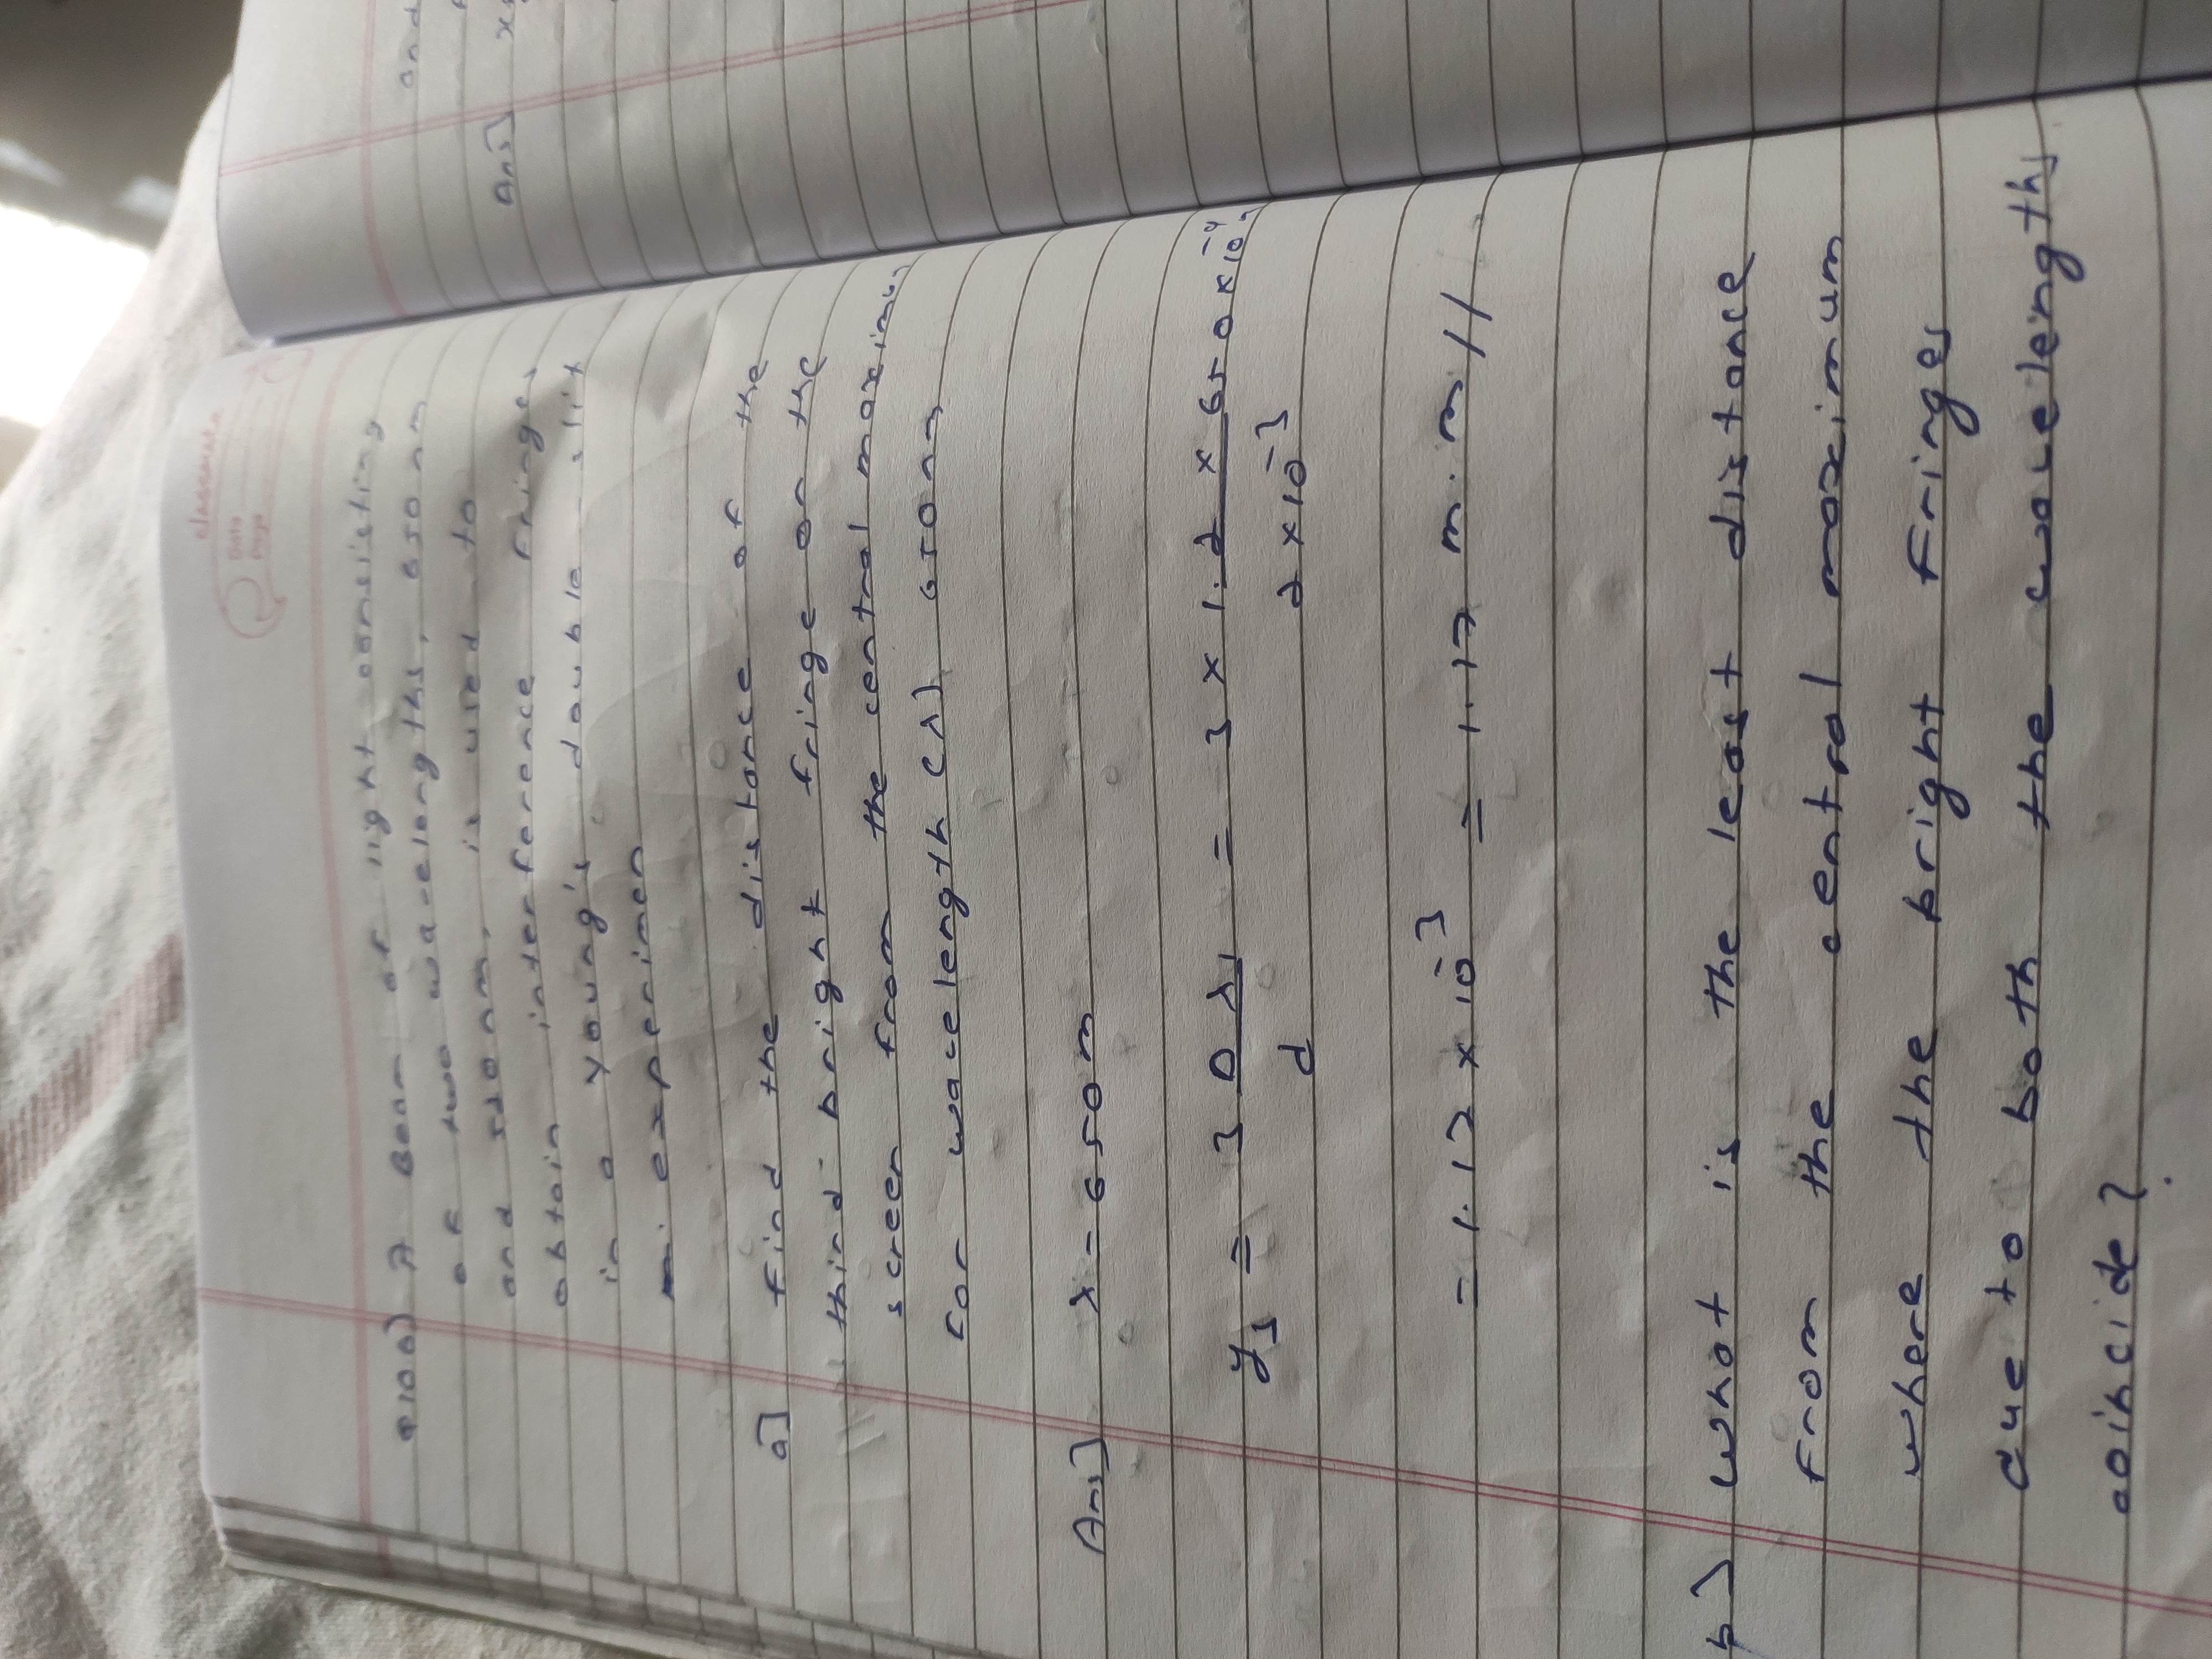 classmate
Date
Page
Q10b) A Beam of light consisting
of two wavelengths, 650 nm
and 520 nm, is used to
obtain interference fringes
in a Young's double slit
experimen
a] find the distance of the
third bright fringe on the
screen from the central maximum
for wavelength (λ) 650nm
Ans] λ = 650m
y3 = 3 D λ1 / d = 3 × 1.2 × 650 × 10^-9 / 2 × 10^-3
= 1.17 × 10^-3 = 1.17 m.m //
b] What is the least distance
from the central maximum
where the bright fringes
due to both the wavelengths
coincide?
and
Ans]